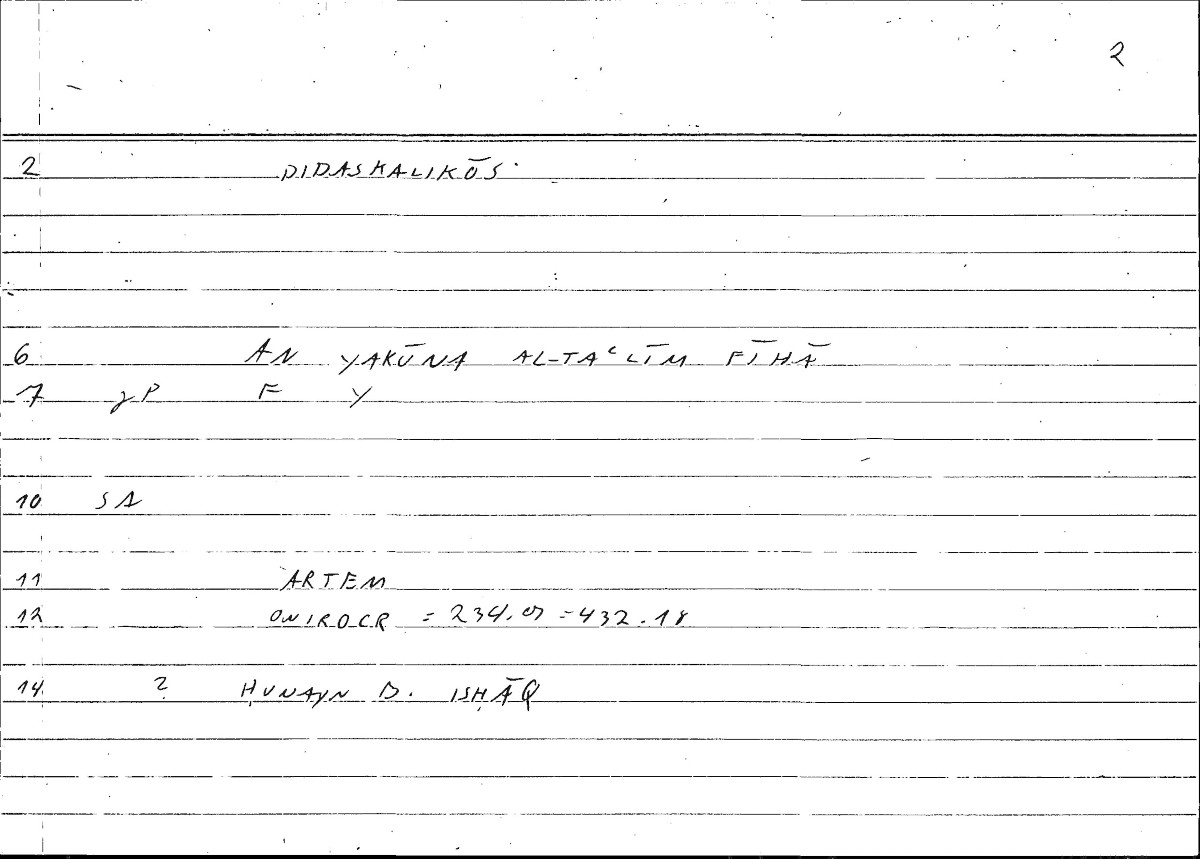 2
2 DIDASKALIKŌS
6 AN YAKŪNA AL-TAʿLĪM FĪHĀ
7 γP F Y
10 SA
11 ARTEM
12 ONIROCR = 234. = 432.18
14 ? ḤUNAYN B. ISḤĀQ